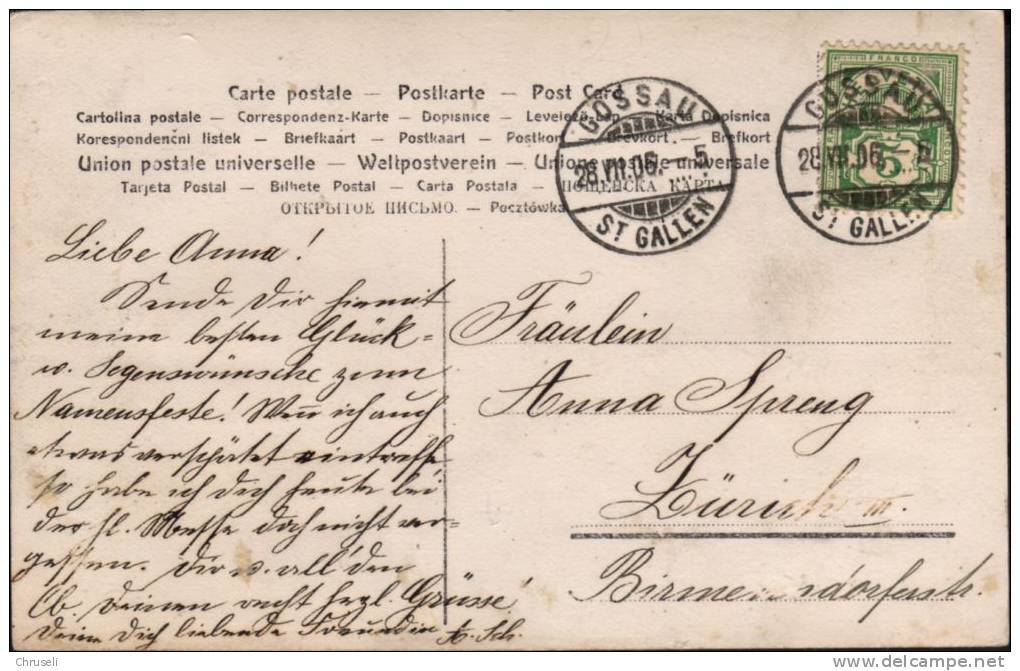 Carte postale — Postkarte — Post Card
Cartolina postale — Correspondenz-Karte — Dopisnice — Levelező-Lap — Karta Dopisnica
Korespondenční listek — Briefkaart — Postkaart — Postkort — Brevkort — Brefkort
Union postale universelle — Weltpostverein — Unione postale universale
Tarjeta Postal — Bilhete Postal — Carta Postala — ПОЩЕНСКА КАРТА
ОТКРЫТОЕ ПИСЬМО. — Pocztówka
GOSSAU
28.VII.06. – 5
ST GALLEN
FRANCO
GOSSAU
28.VII.06. – 5
ST GALLEN
5
Liebe Anna!
Sende Dir hiemit
meine besten Glück=
u. Segenswünsche zum
Namensfeste! Wenn ich auch
etwas verspätet eintreffe
so habe ich Dich heute bei
der hl. Messe doch nicht ver=
gessen. Dir u. all' den
lb. Deinen recht herzl. Grüsse!
Deine Dich liebende Freundin A. Sch.
Fräulein
Anna Spreng
Zürich III.
Birmensdorferstr.
Chruseli
delcampe.net